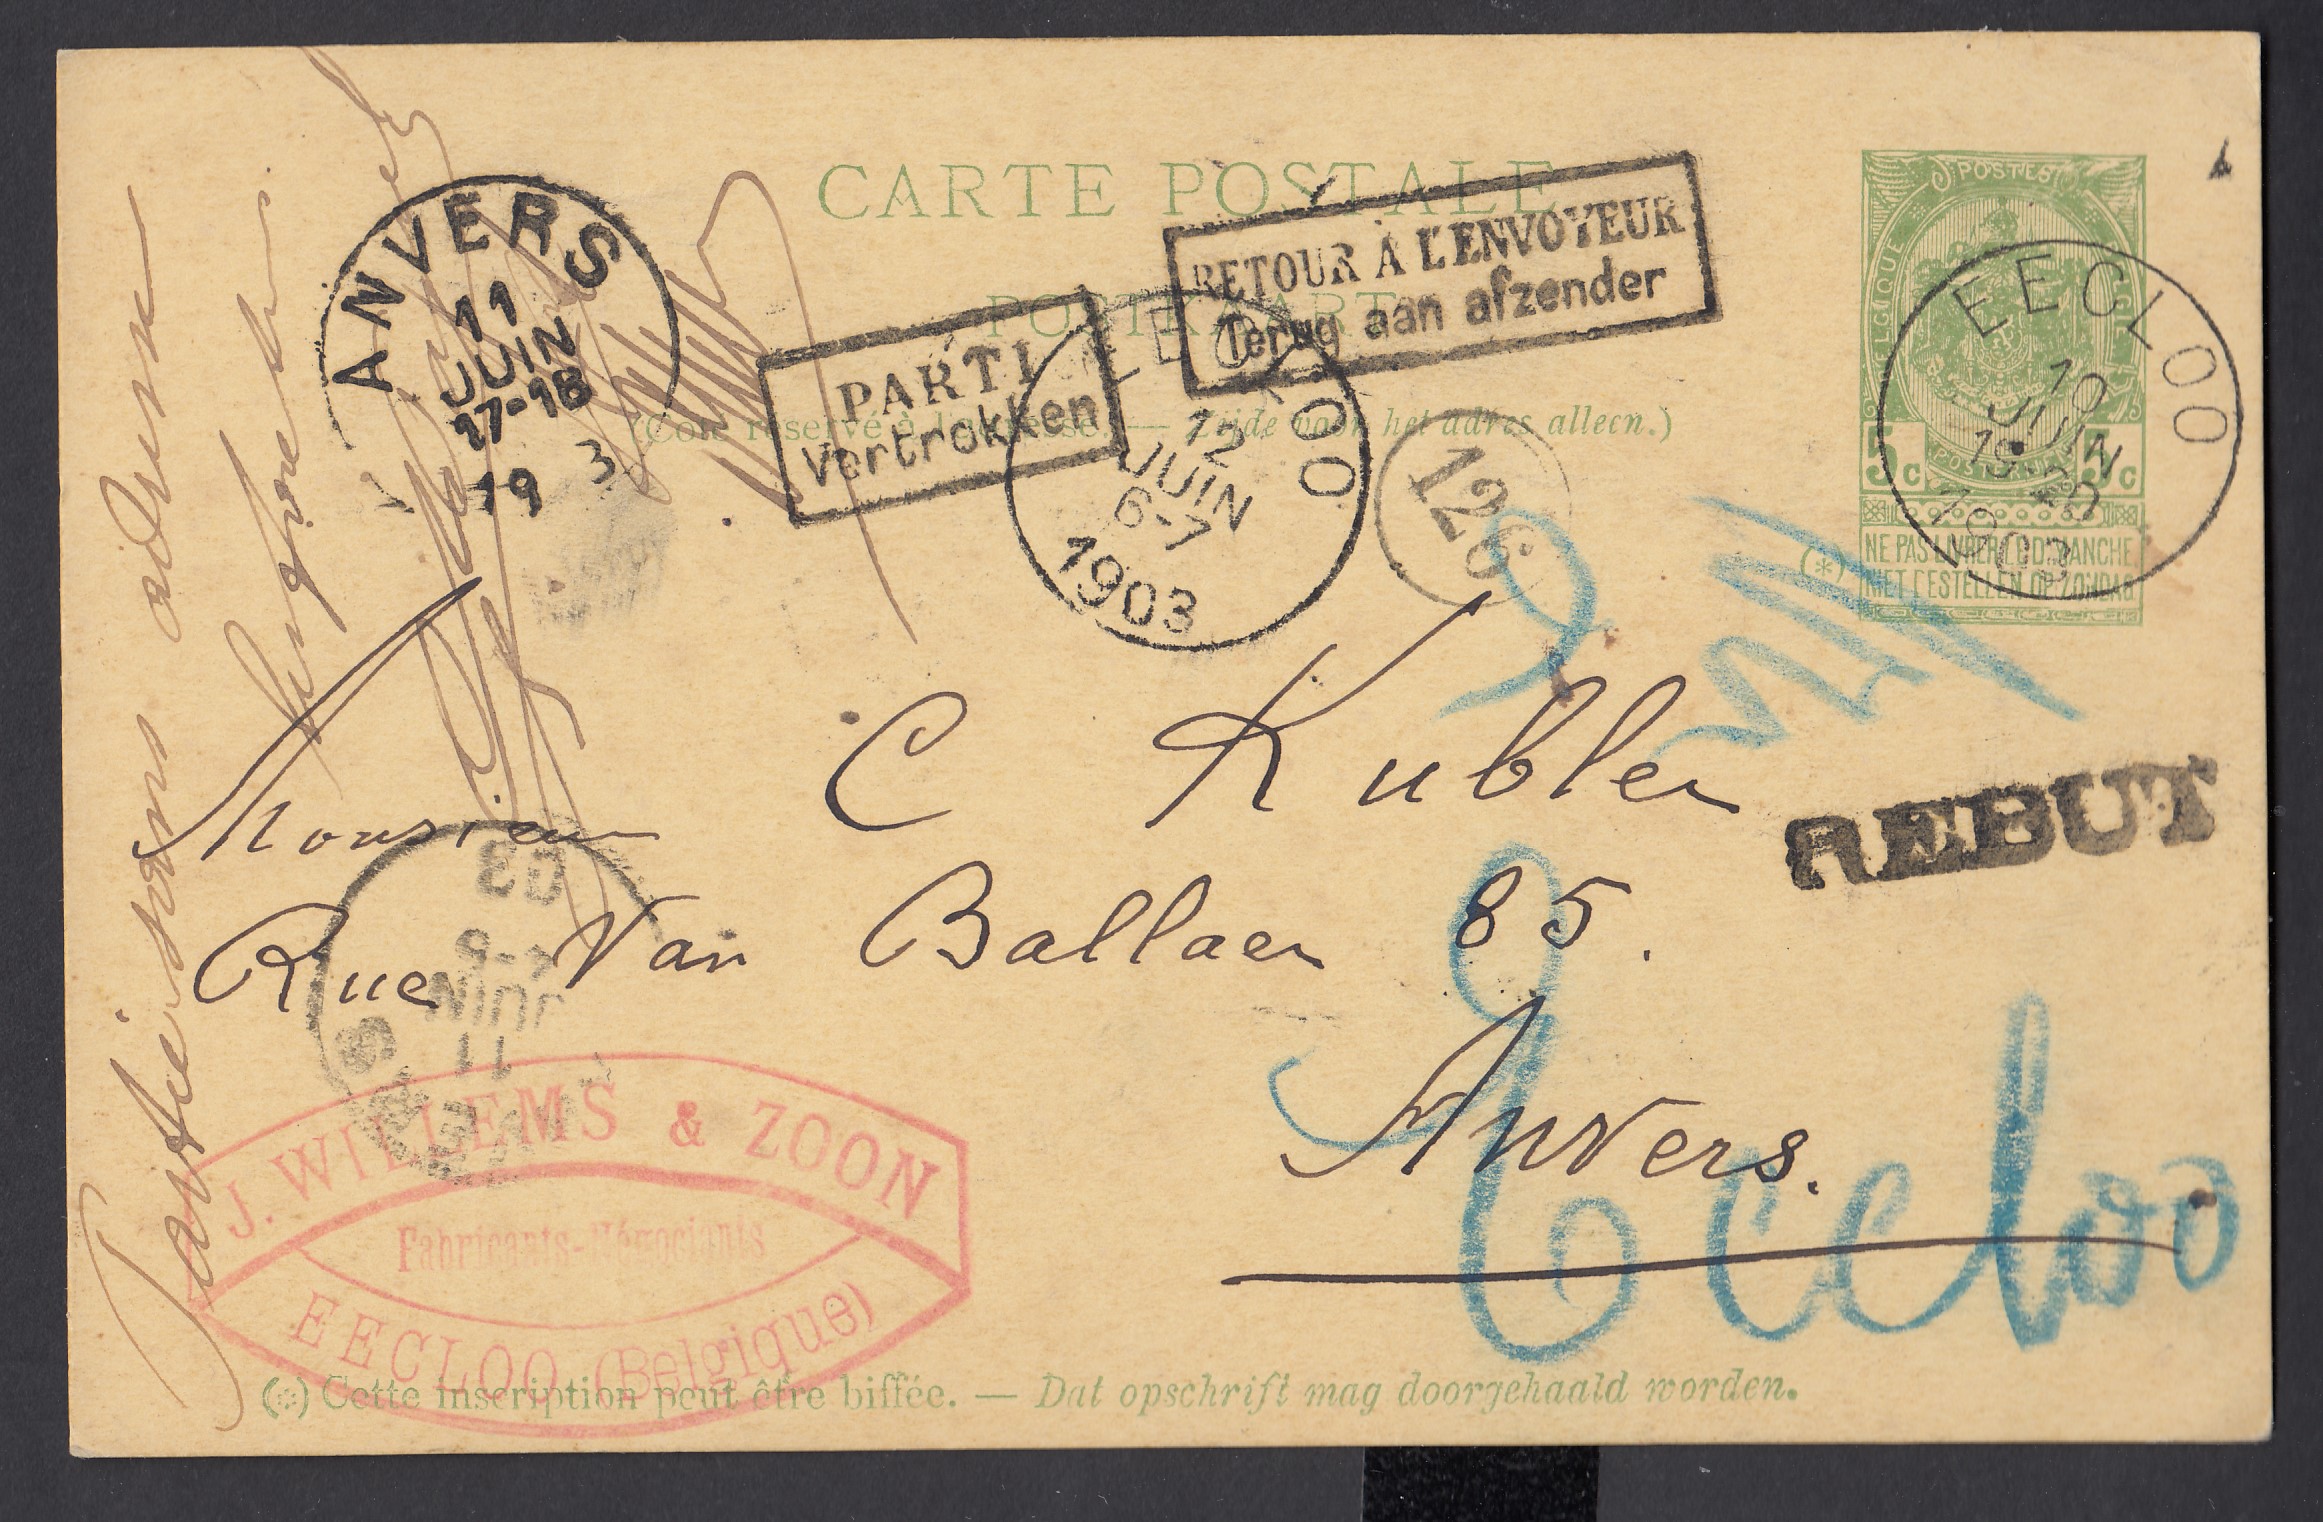 CARTE POSTALE
POSTKAART
(Côté réservé à l'adresse. — Zijde voor het adres alleen.)
POSTES
BELGIQUE
5c 5c
NE PAS LIVRER LE DIMANCHE
NIET BESTELLEN OP ZONDAG
(*)
EECLOO
10
JUIN
19-20
1903
ANVERS
11
JUIN
17-18
19 3
PARTI
Vertrokken
RETOUR À L'ENVOYEUR
Terug aan afzender
EECLOO
12
JUIN
6-7
1903
126
REBUT
Monsieur C Kubler
Rue Van Ballaer 85.
Anvers.
Eecloo
Parti sans adresse
11
JUIN
03
J. WILLEMS & ZOON
Fabricants-Négociants
EECLOO (Belgique)
(*) Cette inscription peut être biffée. — Dat opschrift mag doorgehaald worden.